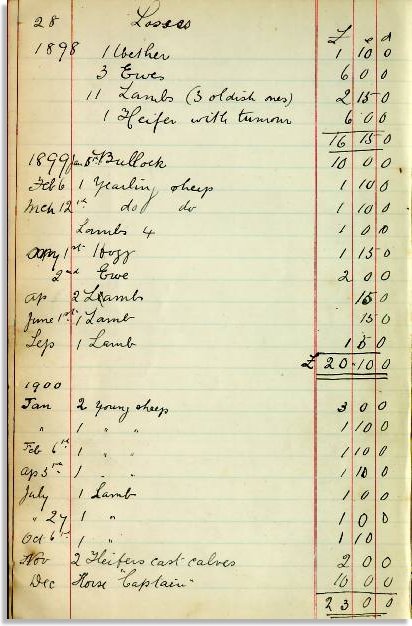 28 Losses
£ s d
1898 1 Wether 1 10 0
3 Ewes 6 0 0
11 Lambs (3 oldish ones) 2 15 0
1 Heifer with tumour 6 0 0
16 15 0
1899 Jan 8th Bullock 10 0 0
Feb 6 1 Yearling sheep 1 10 0
Mch 12th do do 1 10 0
Lambs 4 1 0 0
1st 1 hogg 1 15 0
2nd Ewe 2 0 0
ap 2 Lambs 15 0
June 1st 1 Lamb 15 0
Sep 1 Lamb 1 5 0
£ 20 10 0
1900
Jan 2 Young sheep 3 0 0
" 1 " " 1 10 0
Feb 6th 1 " " 1 10 0
ap 3rd 1 " " 1 10 0
July 1 Lamb 1 0 0
" 27 1 " 1 0 0
Oct 6th 1 " 1 10
Nov 2 Heifers cast calves 2 0 0
Dec Horse "Captain" 10 0 0
23 0 0